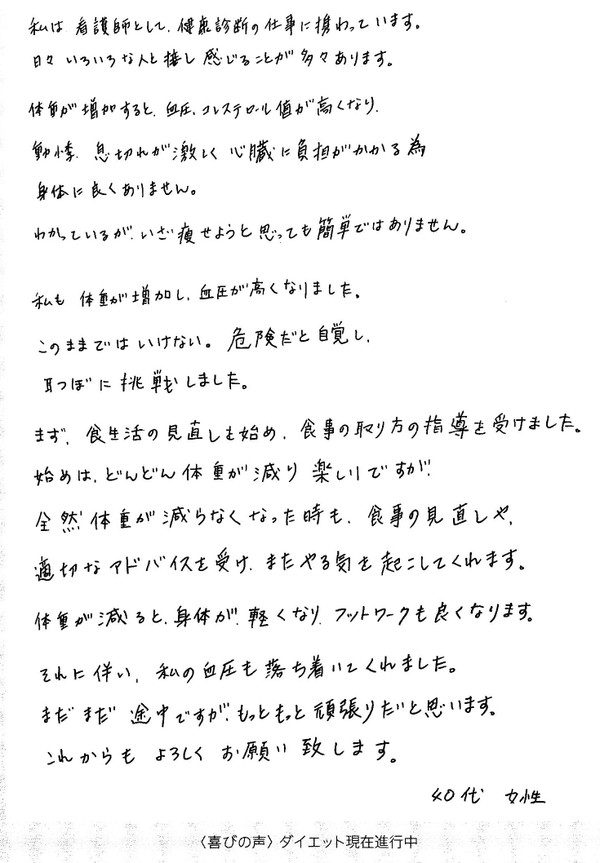 私は看護師として、健康診断の仕事に携わっています。
日々いろいろな人と接し感じることが多々あります。
体重が増加すると、血圧、コレステロール値が高くなり、
動悸、息切れが激しく心臓に負担がかかる為
身体に良くありません。
わかっているが、いざ痩せようと思っても簡単ではありません。
私も体重が増加し、血圧が高くなりました。
このままではいけない。危険だと自覚し、
耳つぼに挑戦しました。
まず、食生活の見直しも始め、食事の取り方の指導を受けました。
始めは、どんどん体重が減り楽しいですが、
全然体重が減らなくなった時も、食事の見直しや、
適切なアドバイスを受け、またやる気を起こしてくれます。
体重が減ると、身体が、軽くなり、フットワークも良くなります。
それに伴い、私の血圧も落ち着いてくれました。
まだまだ途中ですが、もっともっと頑張りたいと思います。
これからもよろしくお願い致します。
40代 女性
〈喜びの声〉ダイエット現在進行中